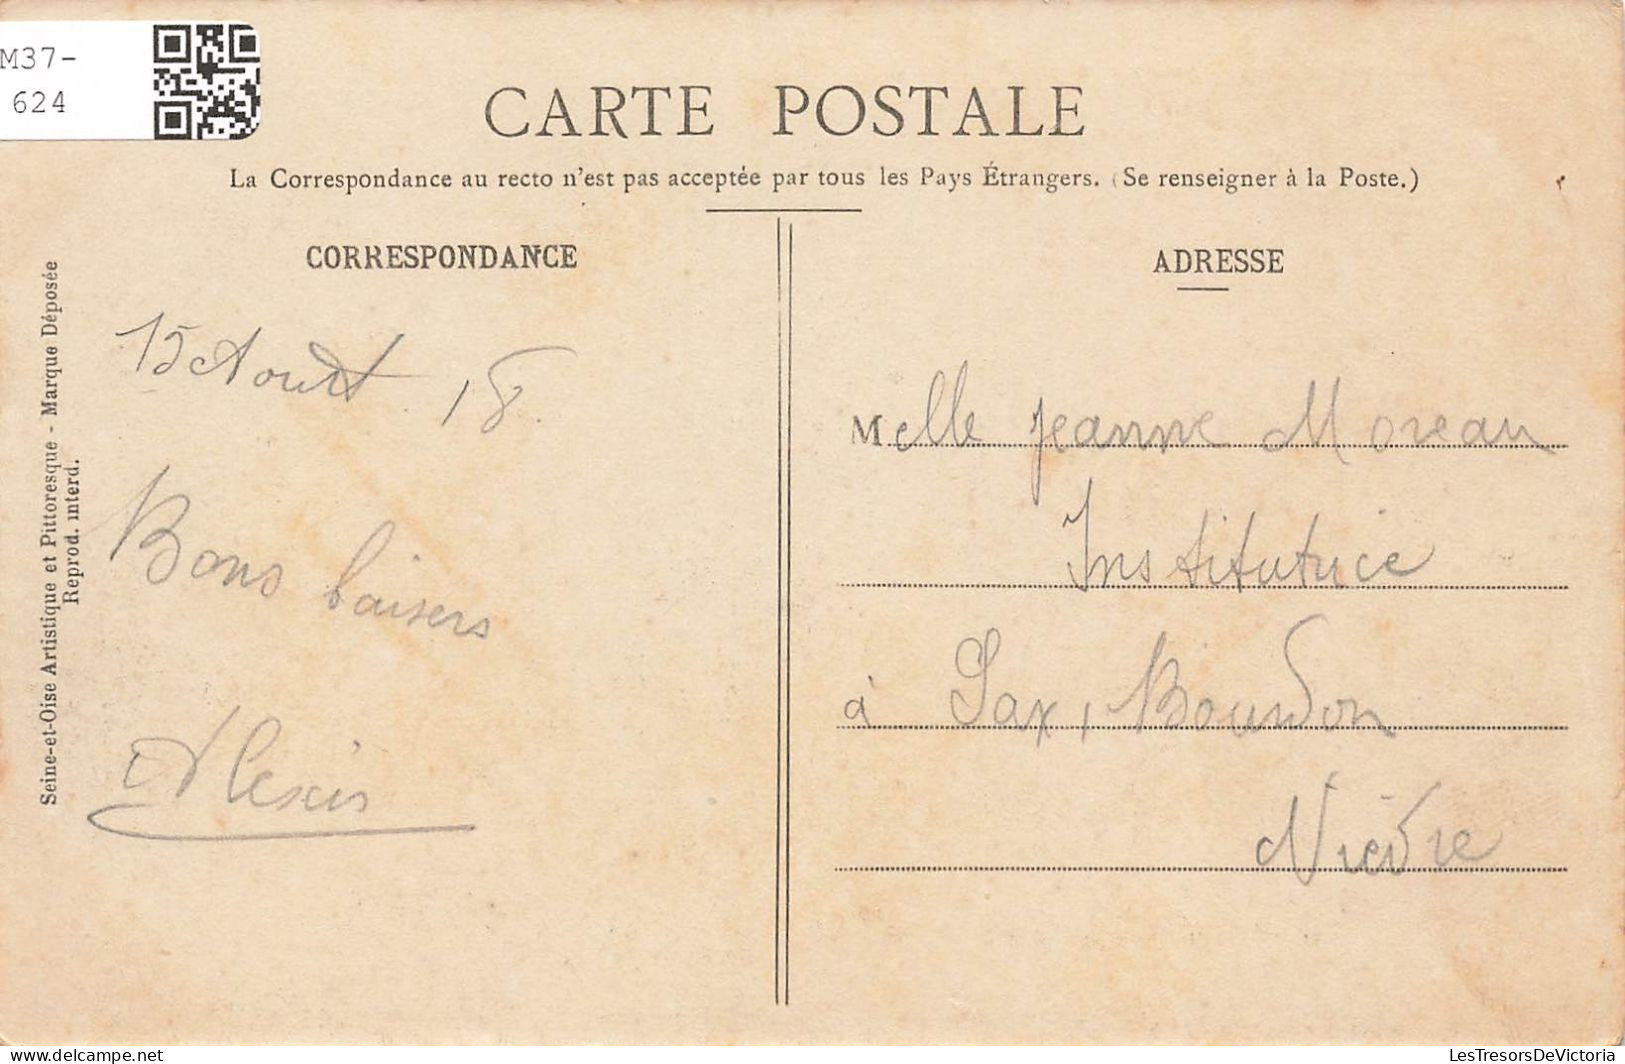 M37-
624
CARTE POSTALE
La Correspondance au recto n'est pas acceptée par tous les Pays Étrangers. (Se renseigner à la Poste.)
CORRESPONDANCE
15 Aout 18.
Bons baisers
Alexis
Seine-et-Oise Artistique et Pittoresque - Marque Déposée
Reprod. interd.
ADRESSE
Melle Jeanne Moreau
Institutrice
à Sax, Bourdon
Nièvre
Delcampe.net
LesTresorsDeVictoria